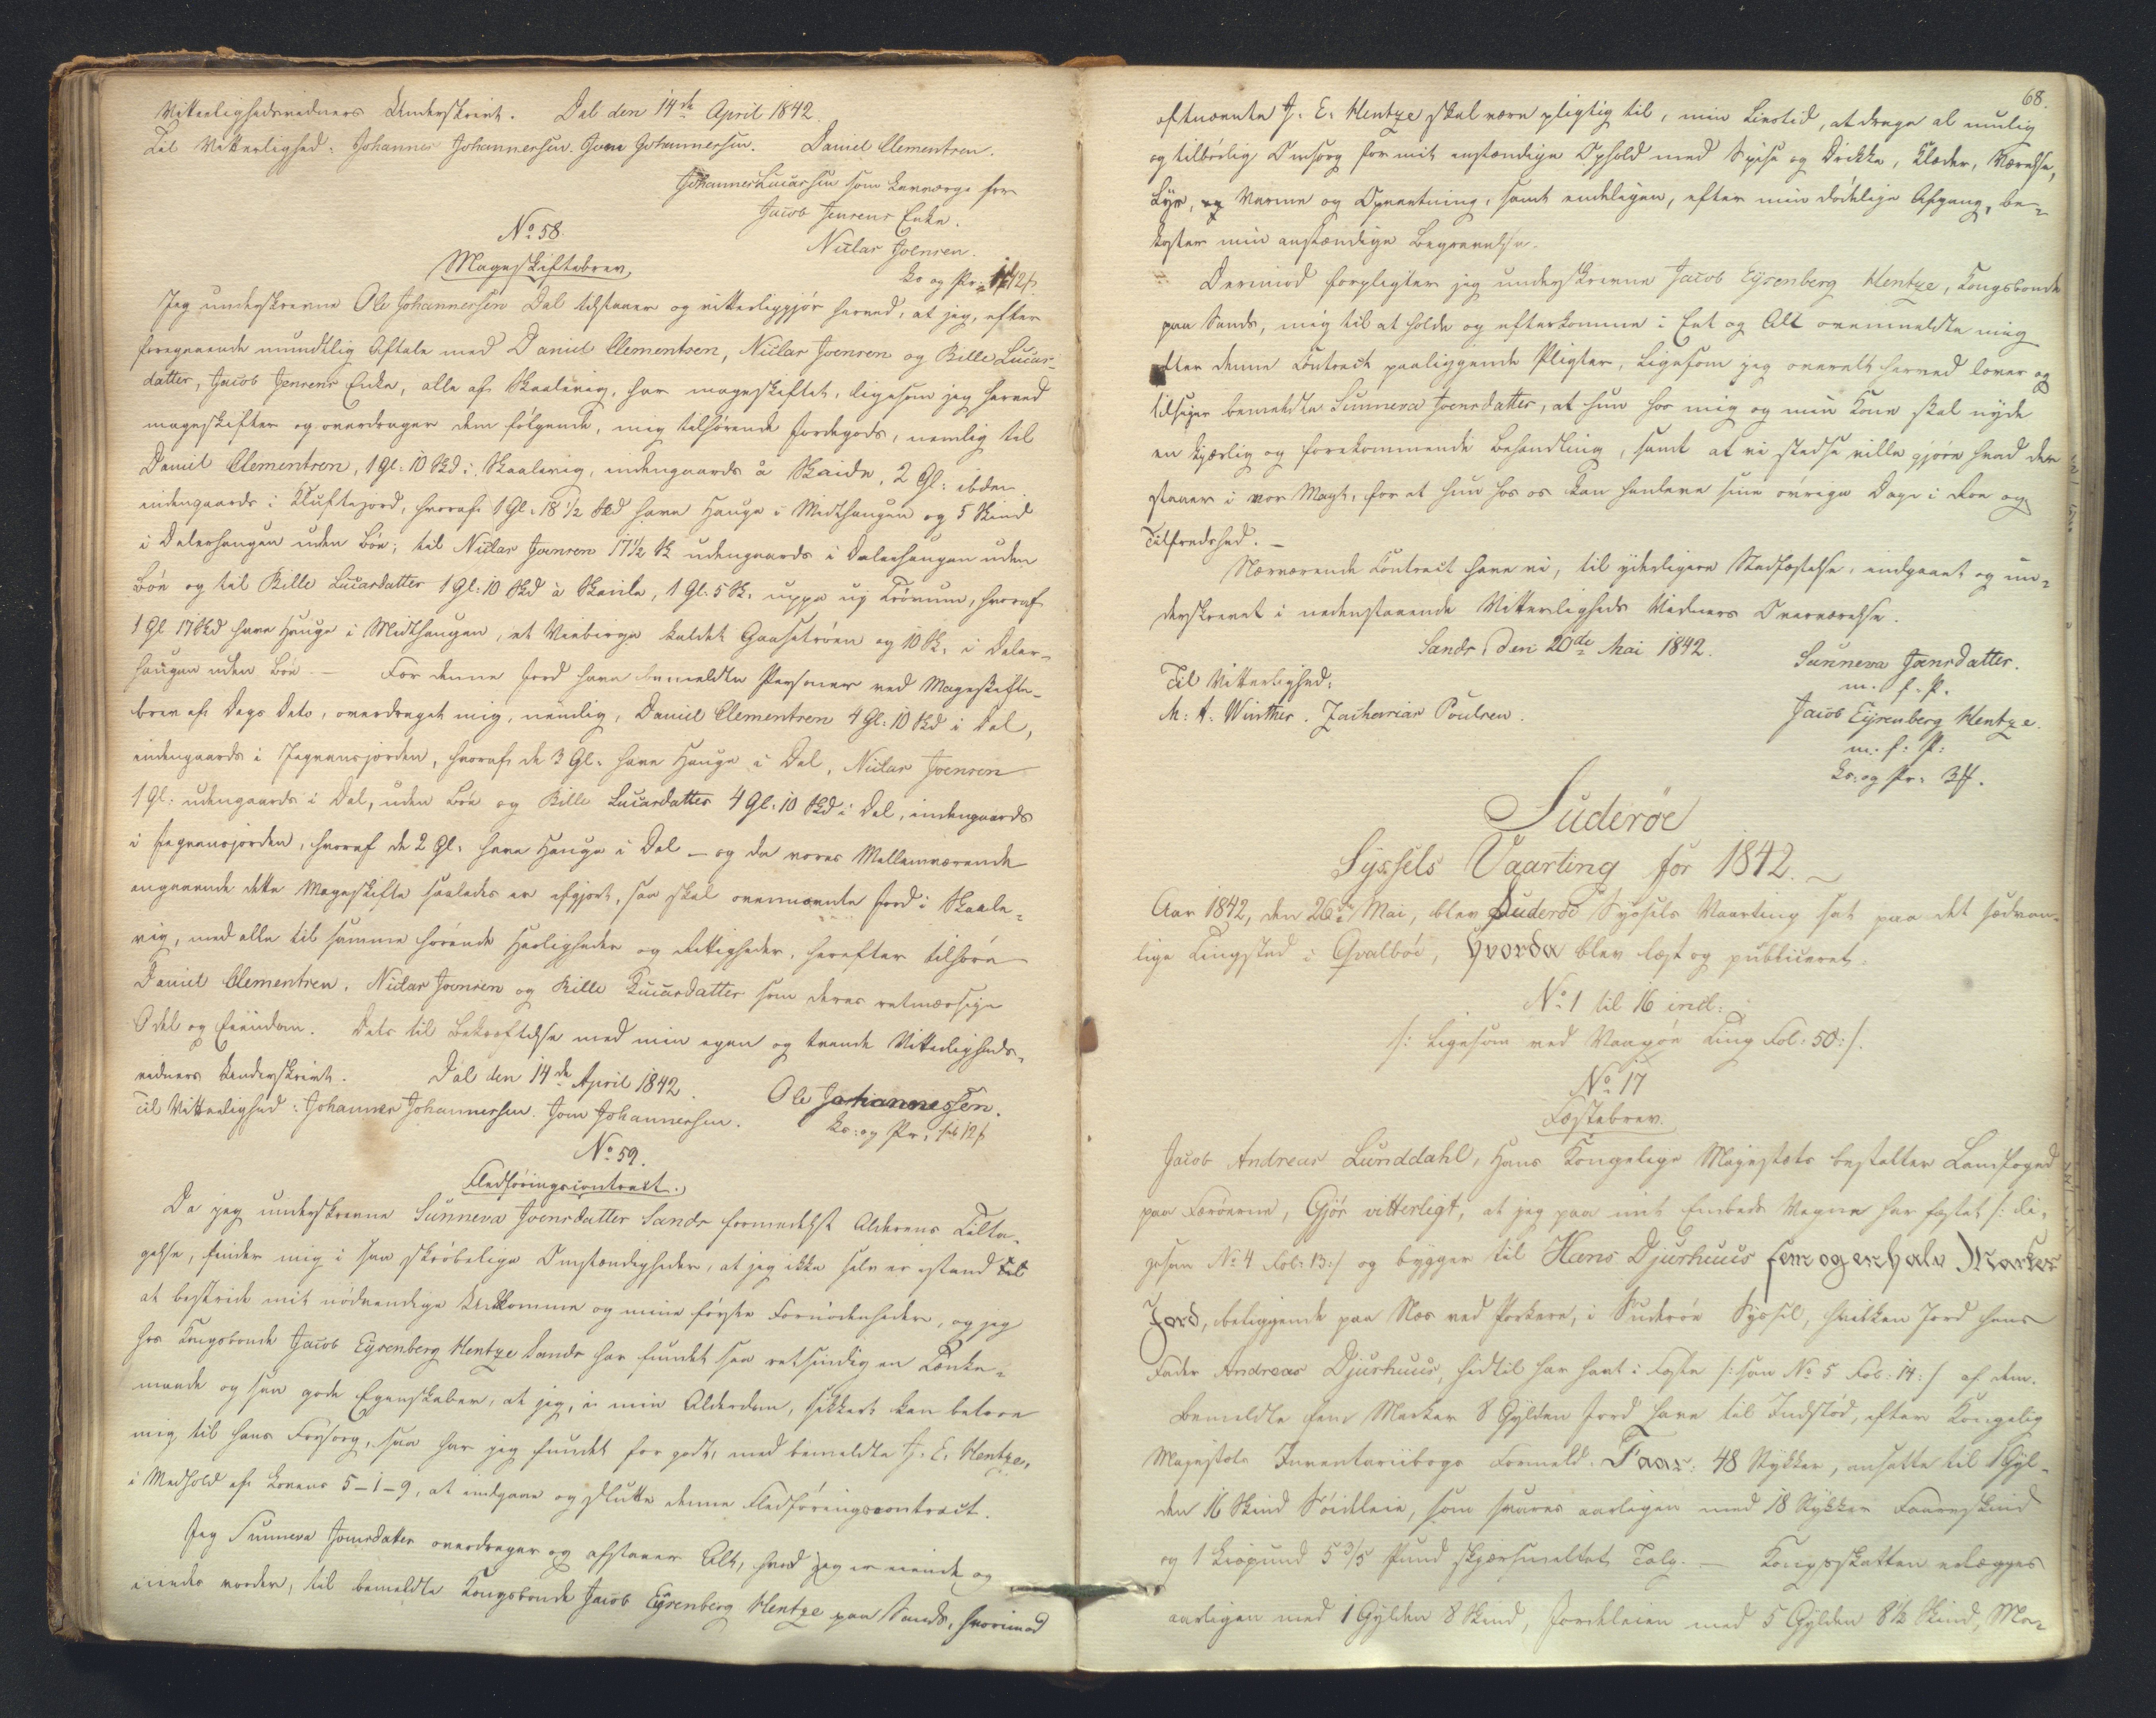 Vitterlighedsvidners Underskrivt. Dal den 14de April 1842.
Til Vitterlighed: Johannes Johannessen. Joen Johannessen. Daniel Clementsen.
Johannes Lucassen som Laugværge for
Jacob Jensens Enke.
Niclas Joensen.
No 58.
Mageskiftebrev,
Jeg underskrevne Ole Johannessen Dal tilstaaer og vitterliggjør herved, at jeg, efter
foregaaende mundtlig Aftale med Daniel Clementsen, Niclas Joensen og Bille Lucas-
datter, Jacob Jensens Enke, alle af Skaalevig, har mageskiftet, ligesom jeg herved
mageskifter og overdrager dem følgende, mig tilhørende Jordegods, nemlig til
Daniel Clementsen, 1 Gl: 10 Skd i Skaalevig, indengaards à Skaide, 2 Gl: ibden
indengaards i Kluftejord, hvoraf 1 Gl: 18 1/2 Skd have Hauge i Midthaugen og 5 Skind
i Dalerhaugen uden Bøe; til Niclas Joensen 17 1/2 Sk udengaards i Dalerhaugen uden
Bøe og til Bille Lucasdatter 1 Gl: 10 Skd à Skaide, 1 Gl. 5 Sk. uppa uj Trøum, hvoraf
1 Gl 17 Skd have Hauge i Midthaugen, et Viebirge kaldet Gaasetrøen og 10 Sk. i Daler-
haugen uden Bøe. — For denne Jord have bemeldte Personer ved Mageskifte-
brev af Dags Dato, overdraget mig, nemlig, Daniel Clementsen 4 Gl: 10 Skd i Dal,
indengaards i Jegvansjorden, hvoraf de 3 Gl. have Hauge i Dal, Niclas Joensen
1 Gl: udengaards i Dal, uden Bøe og Bille Lucasdatter 4 Gl: 10 Skd i Dal, indengaards
i Jegvansjorden, hvoraf de 2 Gl. have Hauge i Dal — og da vores Mellemværende
angaaende dette Mageskifte saaledes er afgjort, saa skal ovennævnte Jord i Skaale-
vig, med alle til samme hørende Herligheder og Rettigheder, herefter tilhøre
Daniel Clementsen, Niclas Joensen og Bille Lucasdatter som deres retmæssige
Odel og Eiendom. Dets til Bekræftelse med min egen og tvende Vitterligheds-
vidners Underskrivt. Dal den 14de April 1842. Ole Johannessen.
Til Vitterlighed: Johannes Johannessen. Joen Johannessen.
No 59.
Fledføringscontract.
Da jeg underskrevne Sunneva Joensdatter Sands formedelst Alderens Tilta-
gelse, finder mig i saa skrøbelige Omstændigheder, at jeg ikke selv er istand til
at bestride mit nødvendige Udkomme og mine første Fornødenheder, og jeg
hos Kongsbonde Jacob Eysenberg Hentze Sands har fundet saa retsindig en Tænke-
maade og saa gode Egenskaber, at jeg, i min Alderdom, sikkert kan betroe
mig til hans Forsorg, saa har jeg fundet for godt, med bemeldte J. E. Hentze,
i Medhold af Lovens 5–1–9, at indgaae og slutte denne Fledføringscontract.
Jeg Sunneva Joensdatter overdrager og afstaaer Alt, hvad jeg er eiende og
eiende vorder, til bemeldte Kongsbonde Jacob Eysenberg Hentze paa Sands, hvorimod
68.
oftnævnte J. E. Hentze skal være pligtig til, min Livstid, at drage al mulig
og tilbørlig Omsorg for mit anstændige Ophold med Spise og Drikke, Klæder, Værelse,
Lys, og Varme og Opvartning, samt endeligen, efter min dødelige Afgang, be-
koster min anstændige Begravelse.
Derimod forpligter jeg underskrevne Jacob Eysenberg Hentze, Kongsbonde
paa Sands, mig til at holde og efterkomme i Eet og Alt ovenmeldte mig
efter denne Contract paaliggende Pligter, ligesom jeg overalt herved lover og
tilsiger bemeldte Sunneva Joensdatter, at hun hos mig og min Kone skal nyde
en kjærlig og forekommende Behandling, samt at vi stedse ville gjøre hvad der
staaer i vor Magt, for at hun hos os kan henleve sine øvrige Dage i Roe og
Tilfredshed. —
Nærværende Contract have vi, til yderligere Stadfæstelse, indgaaet og un-
derskrevet i nedenstaaende Vitterligheds Vidners Overværelse.
Sands, den 20de Mai 1842.
Sunneva Joensdatter.
m. f. P.
Til Vitterlighed:
M: A: Winther. Zacharias Poulsen.
Jacob Eysenberg Hentze.
m. f: P:
Suderøe
Syssels Vaarting for 1842. —
Aar 1842, den 26de Mai, blev Suderøe Syssels Vaarting sat paa det sædvan-
lige Tingsted i Qvalbøe, hvorda blev læst og publiceret.
No 1 til 16 incl:
/: Ligesom ved Vaagøe Ting Fol: 50:/.
No 17
Fæstebrev.
Jacob Andreas Lunddahl, Hans Kongelige Majestæts bestalter Landfoged
paa Færøerne, Gjør vitterligt, at jeg paa mit Embeds Vegne har fæstet /: li-
gesom No 4 Fol: 13:/ og bygger til Hans Djurhuus fem og en halv Marker
Jord, beliggende paa Næs ved Porkere, i Suderøe Syssel, hvilken Jord hans
Fader Andreas Djurhuus, hidtil har havt i Fæste /: see No 5 Fol: 14:/ af dem.
Bemeldte fem Marker 8 Gylden Jord have til Indstød, efter Kongelig
Majestæts Inventariibogs Formeld. Faar: 48 Stykker, ansatte til 1 Gyl-
den 16 Skind Søidleie, som svares aarligen med 18 Stykker Faareskind
og 1 Liispund 5 3/5 Pund skjærsmeltet Talg. — Kongsskatten erlægges
aarligen med 1 Gylden 8 Skind, Jordeleien med 5 Gylden 8 1/2 Skind, Ma-